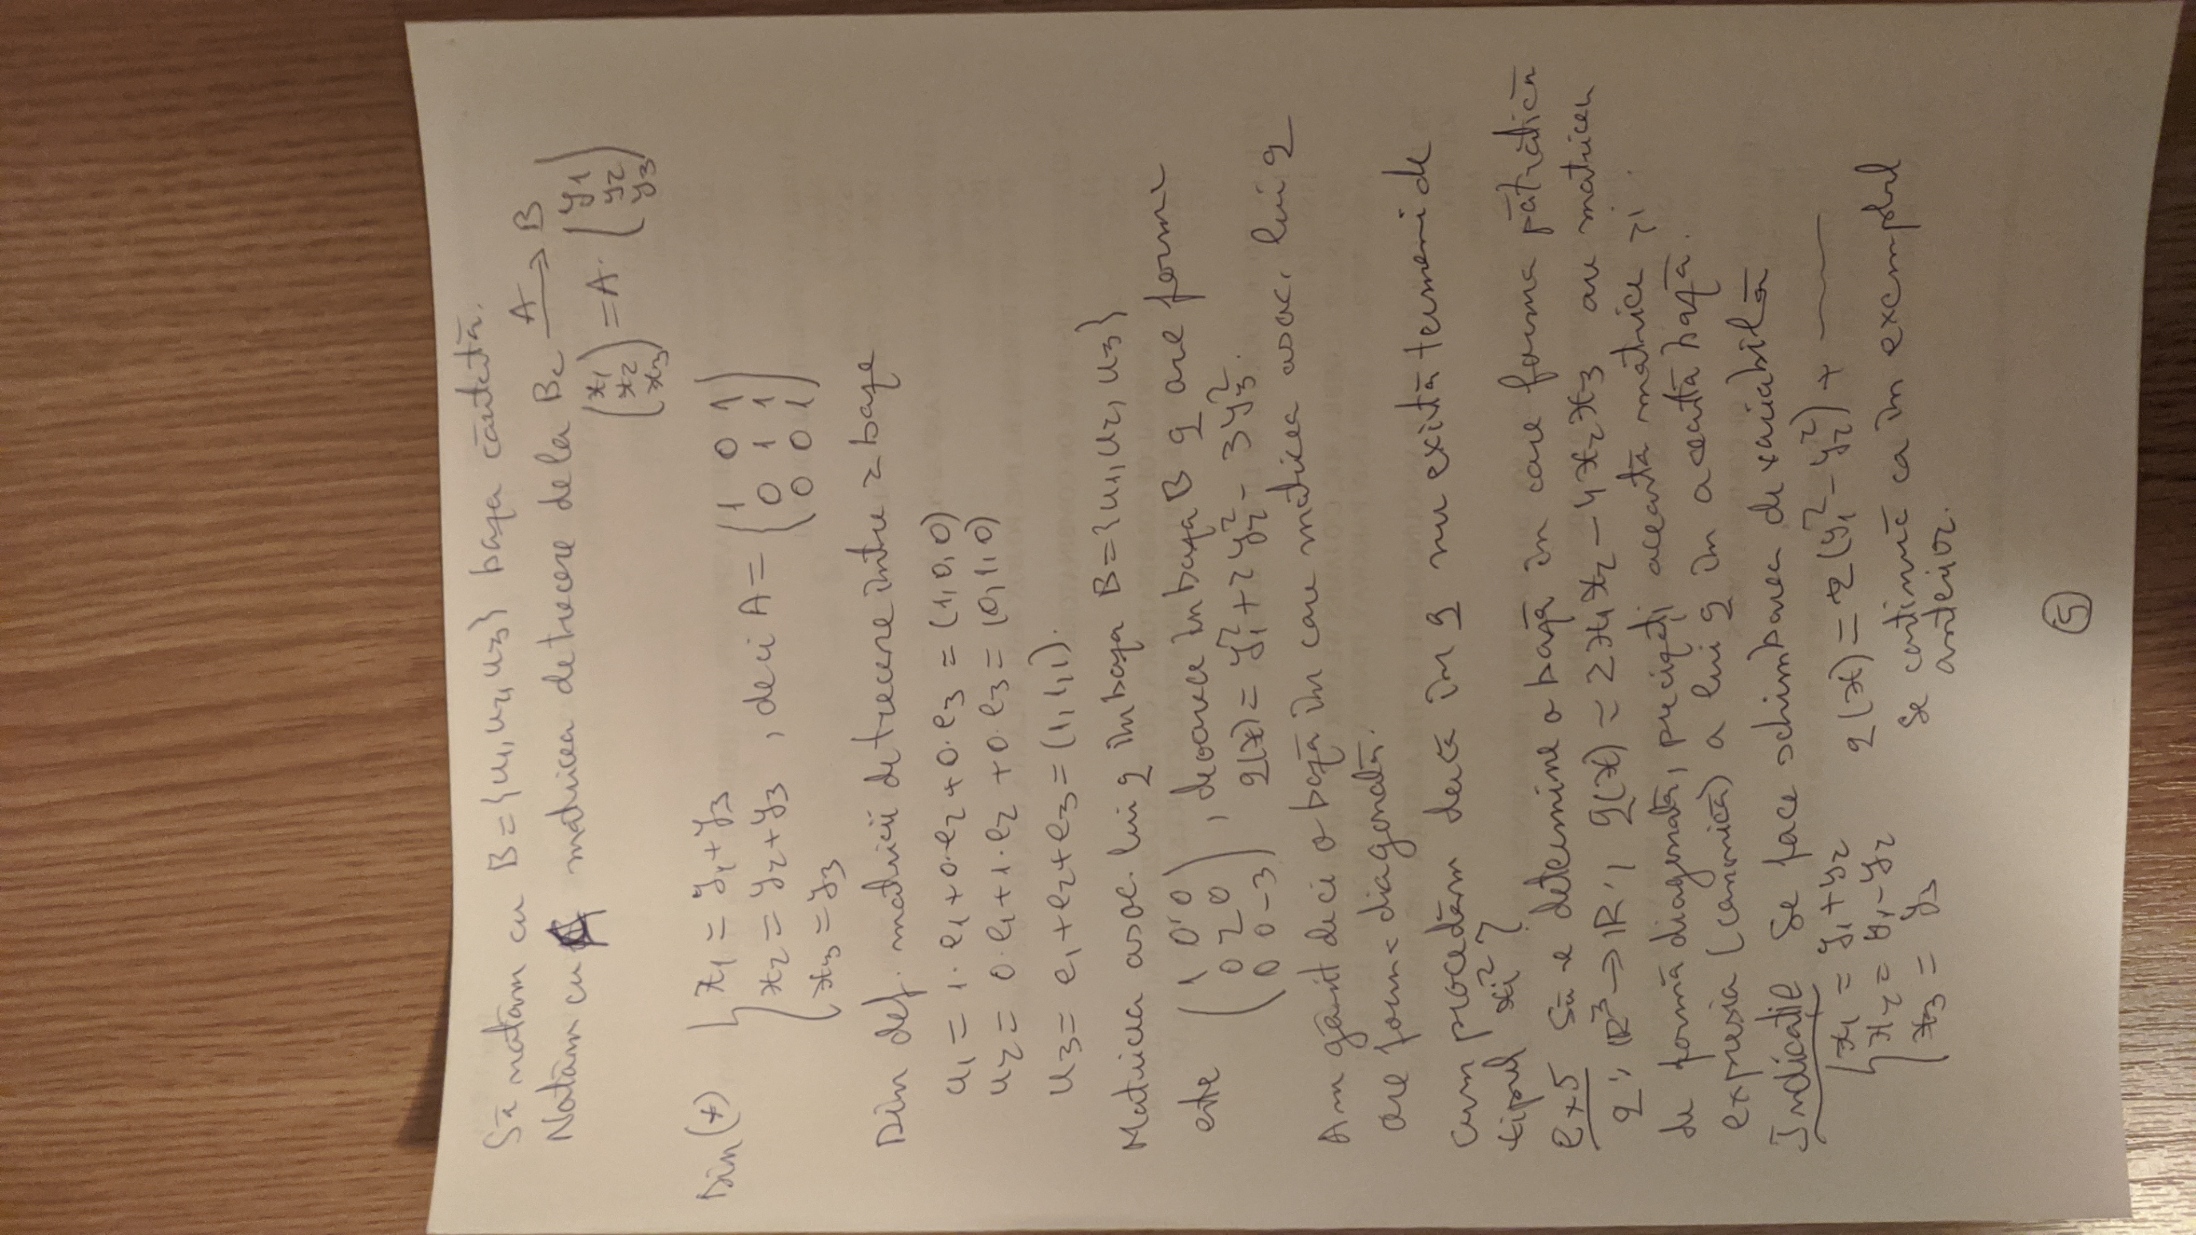 Să notăm cu B = {u1, u2, u3} baza căutată.
Notăm cu A matricea de trecere de la Bc —A→ B
(x1 x2 x3) = A · (y1 y2 y3)
Din (*) { x1 = y1 + y3
x2 = y2 + y3 , deci A = (1 0 1
0 1 1
0 0 1)
x3 = y3
Din def. matricii de trecere între 2 baze
u1 = 1·e1 + 0·e2 + 0·e3 = (1, 0, 0)
u2 = 0·e1 + 1·e2 + 0·e3 = (0, 1, 0)
u3 = e1 + e2 + e3 = (1, 1, 1).
Matricea asoc. lui q în baza B = {u1, u2, u3}
este (1 0 0
0 2 0
0 0 -3) , deoarece în baza B q are forma
q(x) = y1² + 2y2² - 3y3².
Am găsit deci o bază în care matricea asoc. lui q
are forma diagonală.
Cum procedăm dacă în q nu există termeni de
tipul xi² ?
Ex 5 Să se determine o bază în care forma pătratică
q : ℝ³ → ℝ ; q(x) = 2x1x2 - 4x2x3 are matricea
de formă diagonală, precizați această matrice și
expresia (canonică) a lui q în această bază.
Indicație Se face schimbarea de variabilă
{ x1 = y1 + y2
x2 = y1 - y2
x3 = y3
q(x) = 2(y1² - y2²) + ——
Se continuă ca în exemplul
anterior.
5